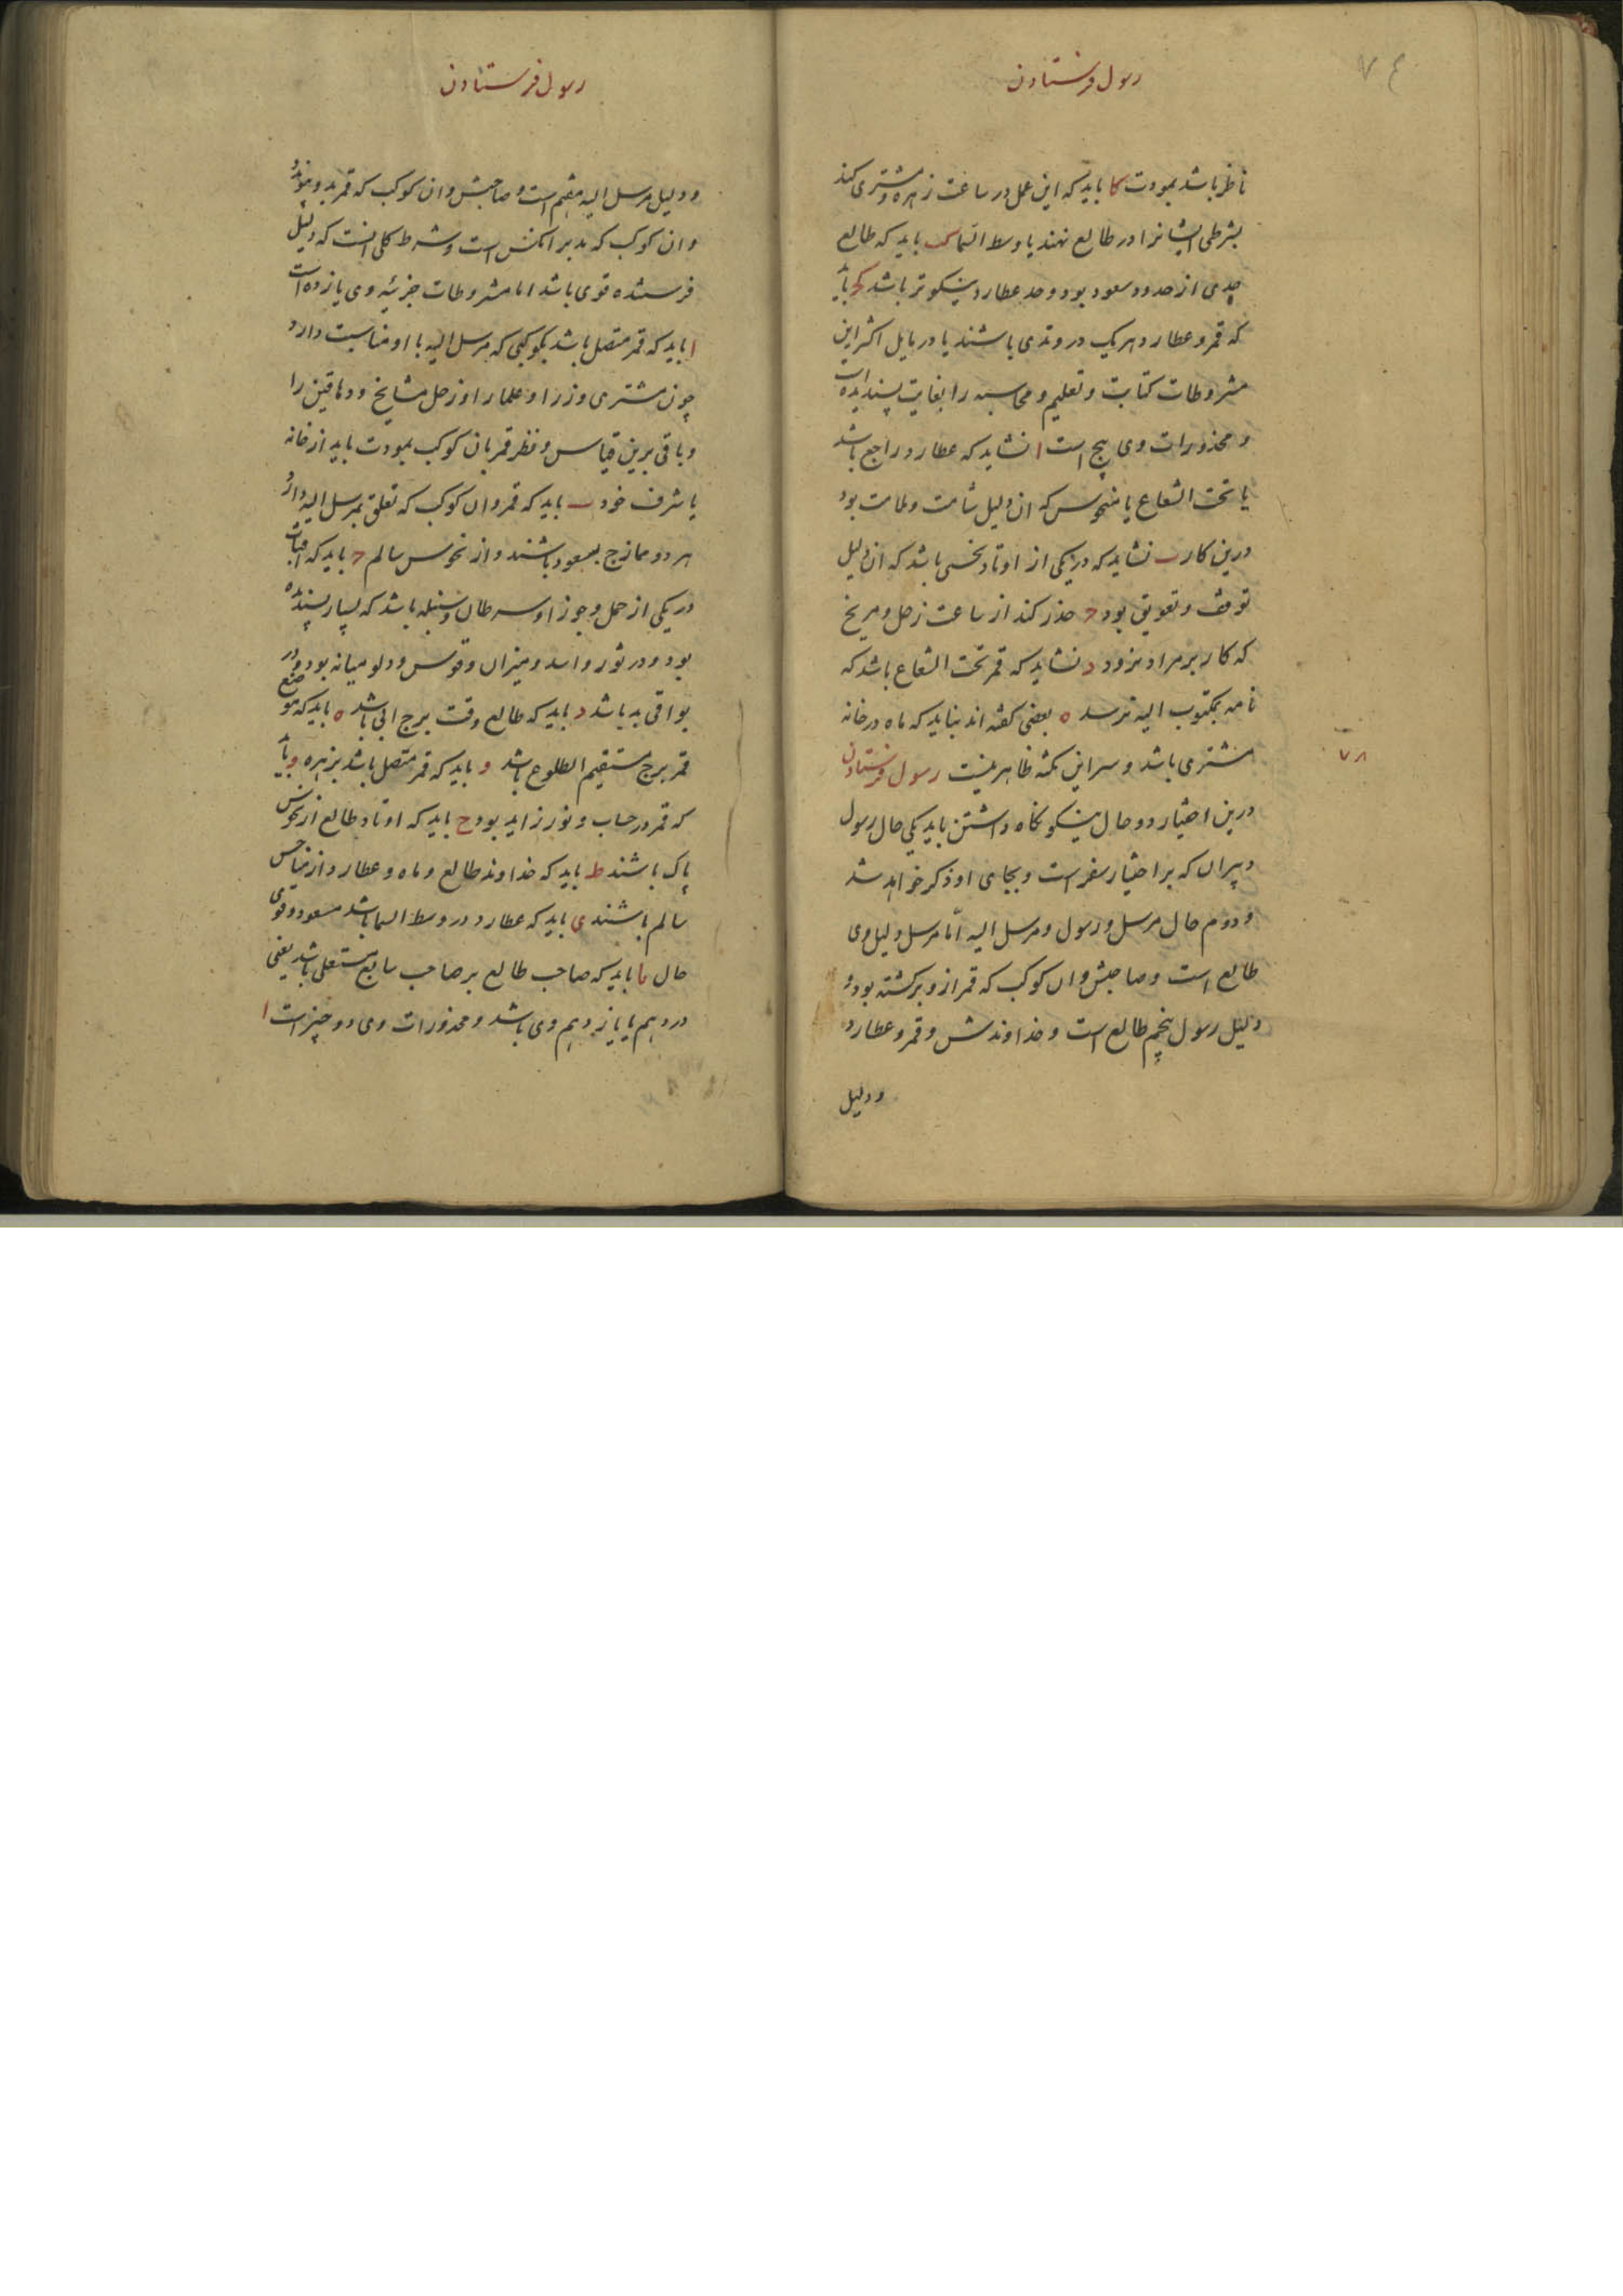 ۷٤
رسول فرستادن
ناظر باشد بمودت کا باید که این عمل در ساعت زهره و مشتری کند
بشرطی ایشانرا در طالع نهند یا وسط السما کب باید که طالع
حدی از حدود سعود بود و حد عطارد نیکوتر باشد کج باید
که قمر و عطارد هر یک در وتدی باشند یا در مایل اکثر این
مشروطات کتابت و تعلیم و محاسبه را بغایت پسندیده است
و محذورات وی پنج است ا نشاید که عطارد راجع باشد
یا تحت الشعاع یا منحوس که ان دلیل شأمت و ملامت بود
درین کار ب نشاید که در یکی از اوتاد نحسی باشد که ان دلیل
توقف و تعویق بود ج حذر کند از ساعت زحل و مریخ
که کار بر مراد نرود د نشاید که قمر تحت الشعاع باشد که
نامه بمکتوب الیه نرسد ه بعضی گفته اند نباید که ماه در خانه
مشتری باشد و سر این نکته ظاهر نیست رسول فرستادن
درین اختیار دو حال نیکو نگاه داشتن باید یکی حال رسول
و سران که بر اختیار سفر است و بجای او ذکر خواهد شد
و دوم حال مرسل و رسول و مرسل الیه امّا مرسل دلیل وی
طالع است و صاحبش و ان کوکب که قمر از و برگشته بود و
دلیل رسول پنجم طالع است و خداوندش و قمر و عطارد
و دلیل
۷۸
رسول فرستادن
و دلیل مرسل الیه هفتم است و صاحبش و ان کوکب که قمر بدو پیوندد
و ان کوکب که مدبر انکس است و شرط کلی انست که دلیل
فرستنده قوی باشد اما مشروطات جزئیه وی یازده است
ا باید که قمر متصل باشد بکوکبی که مرسل الیه با او مناسبت دارد
چون مشتری وزرا و علما را و زحل مشایخ و دهاقین را
و باقی برین قیاس و نظر قمر بان کوکب بمودت باید از خانه
یا شرف خود ب باید که قمر و ان کوکب که تعلق بمرسل الیه دارد
هر دو ممازج بسعود باشند و از نحوس سالم ج باید که افتاب
در یکی از حمل و جوزا و سرطان و سنبله باشد که بسیار پسندیده
بود و در ثور و اسد و میزان و قوس و دلو میانه بود و در
بواقی بد باشد د باید که طالع وقت برج ابی باشد ه باید که موضع
قمر برج مستقیم الطلوع باشد و باید که قمر متصل باشد بزهره و باید
که قمر در حساب و نور زاید بود ح باید که اوتاد طالع از نحوس
پاک باشند ط باید که خداوند طالع و ماه و عطارد از مناحس
سالم باشند ی باید که عطارد در وسط السما باشد مسعود و قوی
حال یا باید که صاحب طالع بر صاحب سابع مستعلی باشد یعنی
در دهم یا یازدهم وی باشد و محذورات وی دو چیز است ا